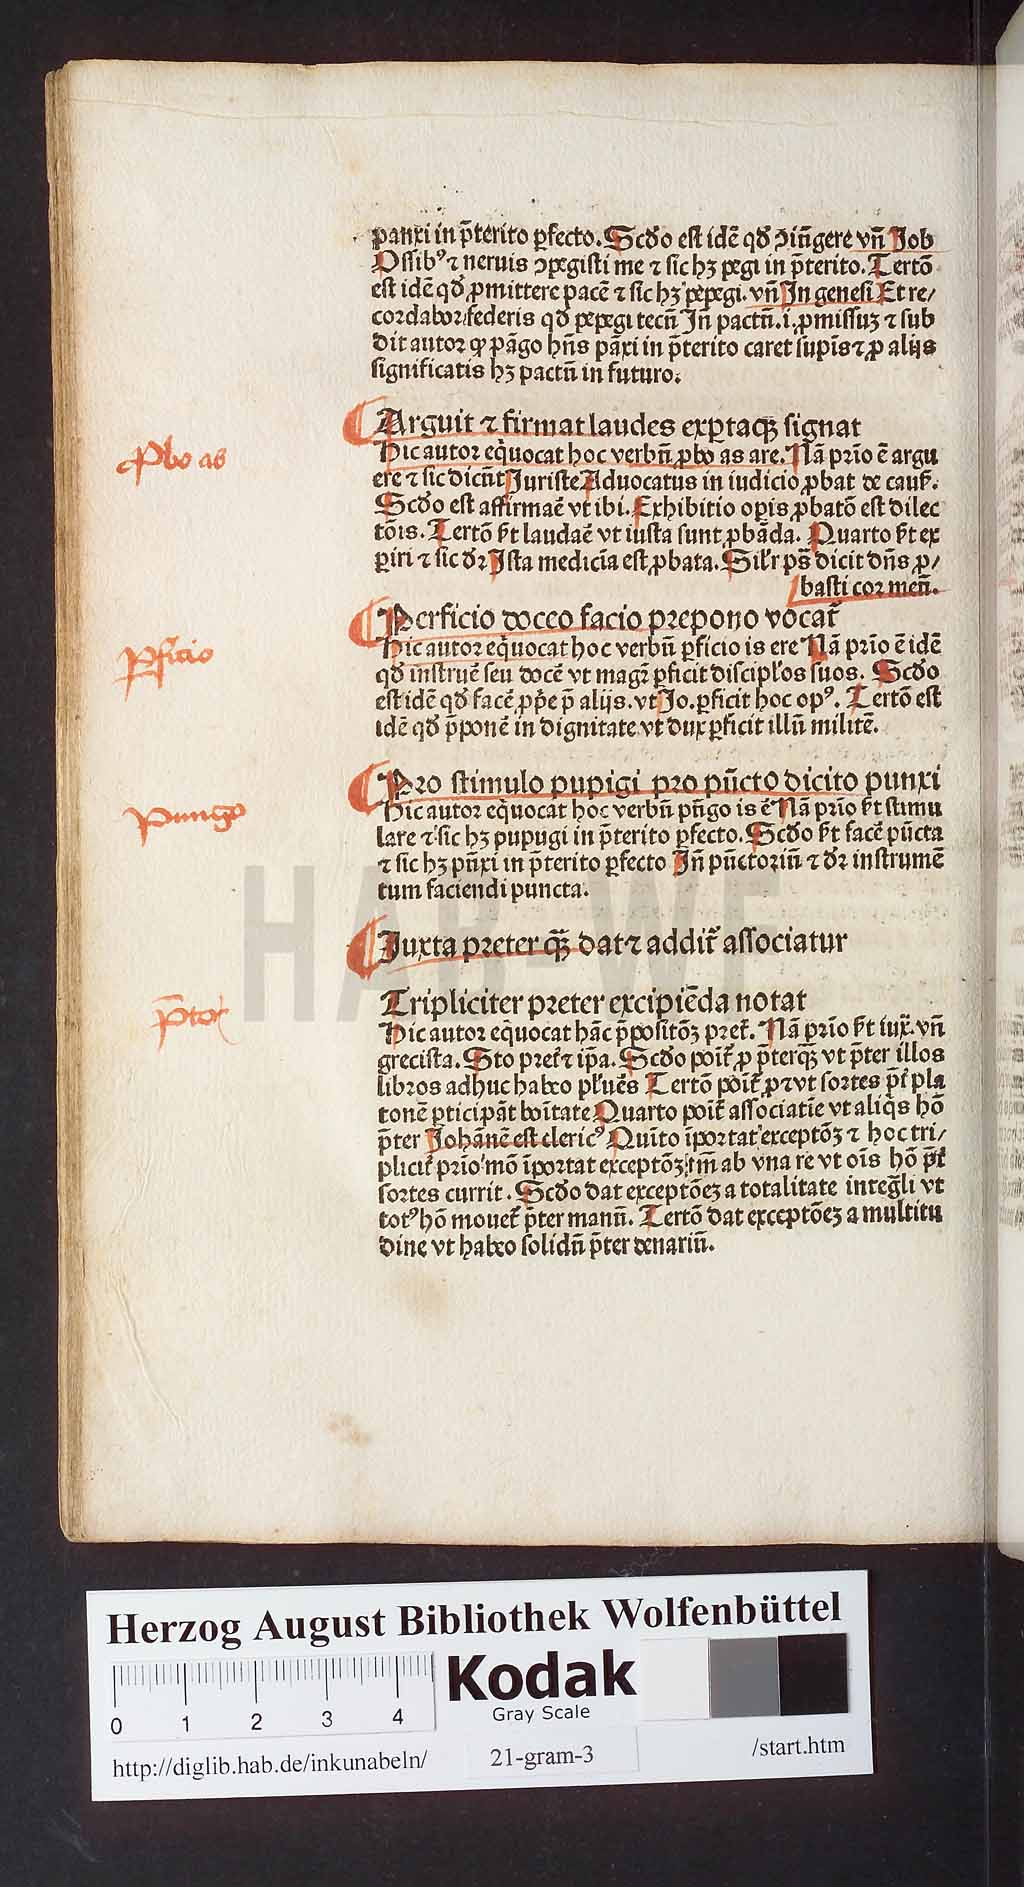 panxi in p̄terito ꝑfecto. Scd̄o est idē qd̄ ↄiūgere vn̄ Job
Ossibꝰ ⁊ neruis ↄpegisti me ⁊ sic hꝫ pegi in p̄terito. Tertō
est idē qd̄ ꝓmittere pacē ⁊ sic hꝫ pepegi. vn̄ In genesi Et re/
cordabor federis qd̄ pepegi tecū Jn̄ pactū .i. ꝓmissuꝫ ⁊ sub
dit autor ꝙ pāgo hn̄s pāxi in p̄terito caret supīs ⁊ ꝓ alijs
significatis hꝫ pactū in futuro.
Arguit ⁊ firmat laudes exꝑtaqꝫ signat
Hic autor eq̄uocat hoc verbū ꝓbo as are. Nā prīo ē argu
ere ⁊ sic dicūt Juriste Aduocatus in iudicio ꝓbat de
Scd̄o est affirmaē vt ibi. Exhibitio oꝑis ꝓbatō est dilec
tōis. Tertō laudaē vt iusta sunt ꝓbāda. Quarto ex
ꝑiri ⁊ sic dr̄ Ista medicīa est ꝓbata. Silr̄ ps̄ dicit dn̄s ꝓ/
basti cor meū.
ꝓbo as
Perficio doceo facio prepono vocat̄
Hic autor eq̄uocat hoc verbū ꝑficio is ere Nā prīo ē idē
qd̄ instruē seu docē vt magr̄ ꝑficit discipl̄os suos. Scd̄o
est idē qd̄ facē p̄ alijs. vt Jo. ꝑficit hoc opꝰ. Tertō est
idē qd̄ p̄ponē in dignitate vt dux ꝑficit illū militē.
ꝑficio
Pro stimulo pupigi pro pūcto dicito punxi
Hic autor eq̄uocat hoc verbū pūgo is ē Nā prīo stimu
lare ⁊ sic hꝫ pupugi in p̄terito ꝑfecto. Scd̄o facē pūcta
⁊ sic hꝫ pūxi in p̄terito ꝑfecto Jn̄ pūctoriū ⁊ dr̄ instrumē
tum faciendi puncta.
pungo
Iuxta preter qꝫ̄ dat ⁊ addit̄ associatur
Tripliciter preter excipiēda notat
Hic autor eq̄uocat hāc p̄positōꝫ pret̄. Nā prīo iux̄. vn̄
grecista. Sto pret̄ ⁊ ip̄a. Scd̄o poit̄ ꝓ p̄terqꝫ̄ vt p̄ter illos
libros adhuc habeo pl̄uēs Tertō poit̄ ꝓ ⁊ vt sortes p̄t̄ pla
tonē ꝑticipāt boītate Quarto poit̄ associatīe vt aliq̄s hō
p̄ter Johānē est clericꝰ Quīto īportat exceptōꝫ ⁊ hoc tri/
plicit̄ prīo mō īportat exceptōꝫ tm̄ ab vna re vt oīs hō p̄t̄
sortes currit. Scd̄o dat exceptōeꝫ a totalitate inteḡli vt
totꝰ hō mouet̄ p̄ter manū. Tertō dat exceptōeꝫ a multitu
dine vt habeo solidū p̄ter denariū.
p̄ter
HAB-WF
Herzog August Bibliothek Wolfenbüttel
Kodak
Gray Scale
0 1 2 3 4
http://diglib.hab.de/inkunabeln/ 21-gram-3 /start.htm